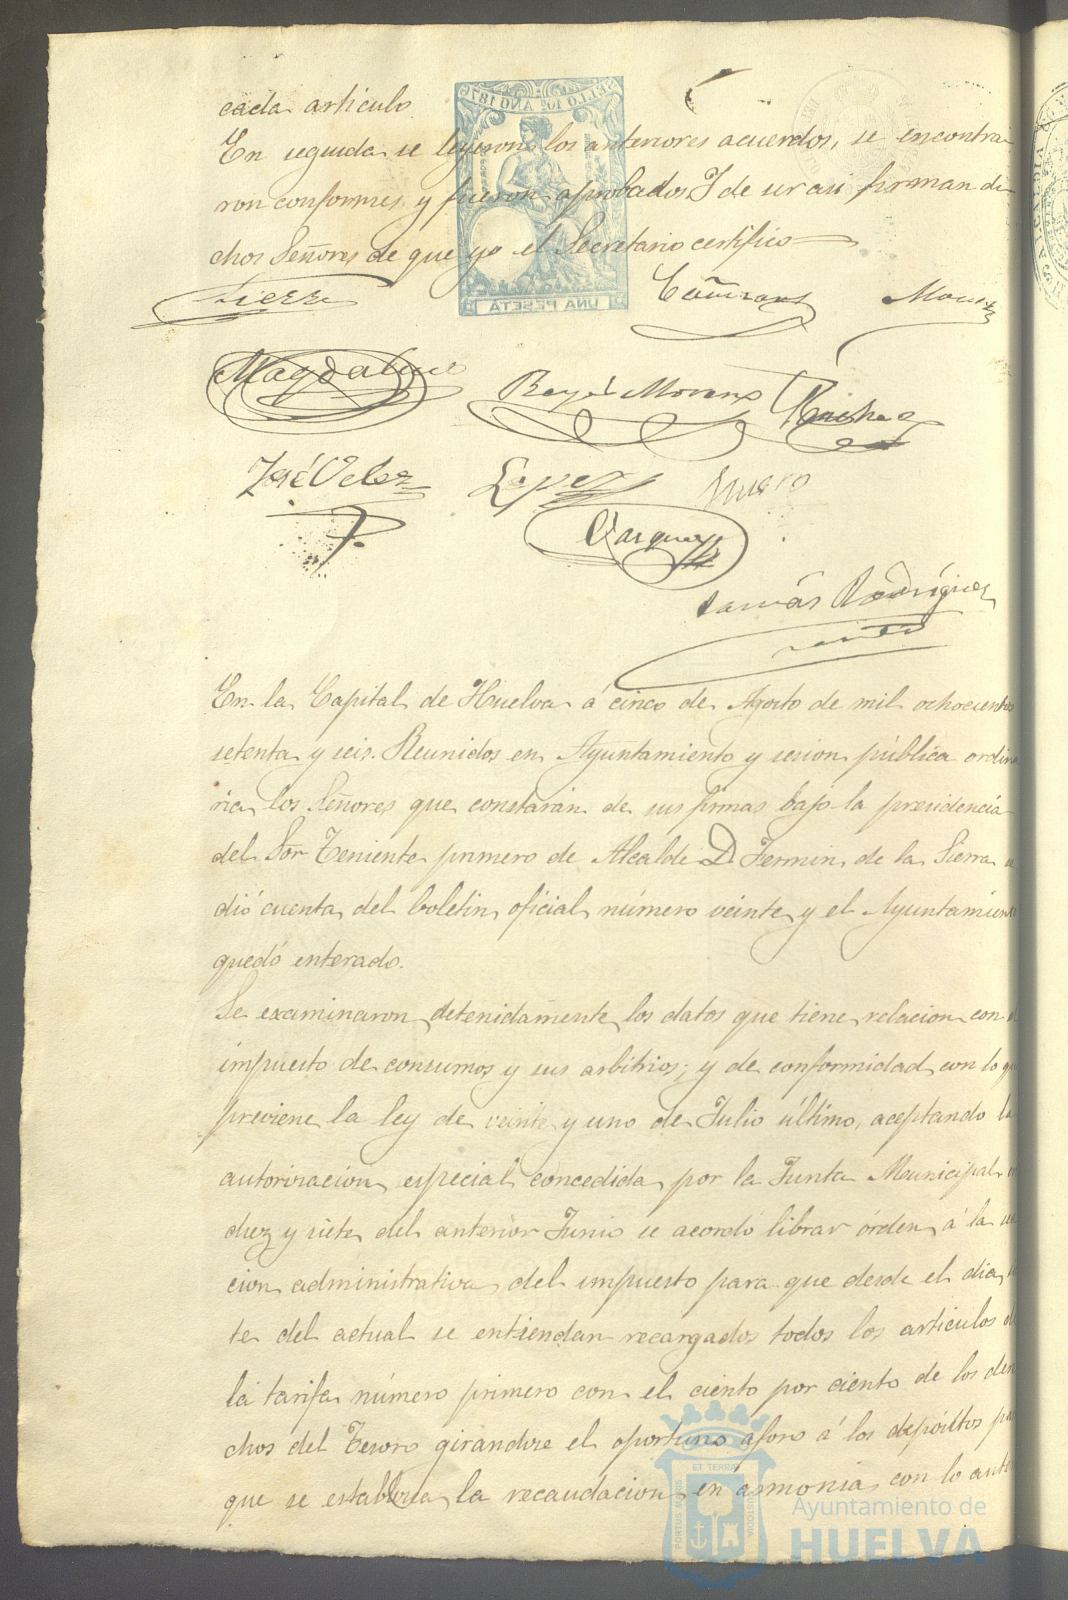 cada artículo
En seguida se leyeron los anteriores acuerdos, se encontra-
ron conformes y fueron aprobados Y de ser asi firman di-
chos Señores de que yo el Secretario certifico
Sierra
Magdalena
Reyes Moreno
José Velez
Lopez
Vazquez
Tomás Rodríguez
SELLO 10º AÑO 1876
UNA PESETA
En la Capital de Huelva á cinco de Agosto de mil ochocientos
setenta y seis. Reunidos en Ayuntamiento y sesion pública ordina
ria los Señores que constarán de sus firmas bajo la presidencia
del Sor Teniente primero de Alcalde D Fermin de la Sierra se
dió cuenta del boletin oficial número veinte y el Ayuntamiento
quedó enterado.
Se examinaron detenidamente los datos que tiene relacion con el
impuesto de consumos y sus arbitrios; y de conformidad con lo que
previene la ley de veinte y uno de Julio último, aceptando la
autorizacion especial concedida por la Junta Municipal en
diez y siete del anterior Junio se acordó librar órden á la sec
cion administrativa del impuesto para que desde el dia
te del actual se entiendan recargados todos los articulos de
la tarifa número primero con el ciento por ciento de los dere
chos del Tesoro girandose el oportuno aforo á los depósitos para
que se establezca la recaudacion en armonia con lo ante
PORTUS MARIS ET TERRAE CUSTODIA
Ayuntamiento de
HUELVA